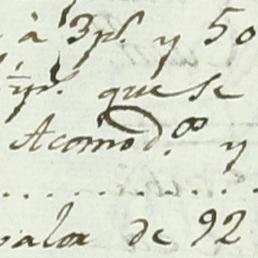 à 3 ps. y 50
que se
Acomod.ᵒˢ y
. . . . . . . . . .
valor de 92